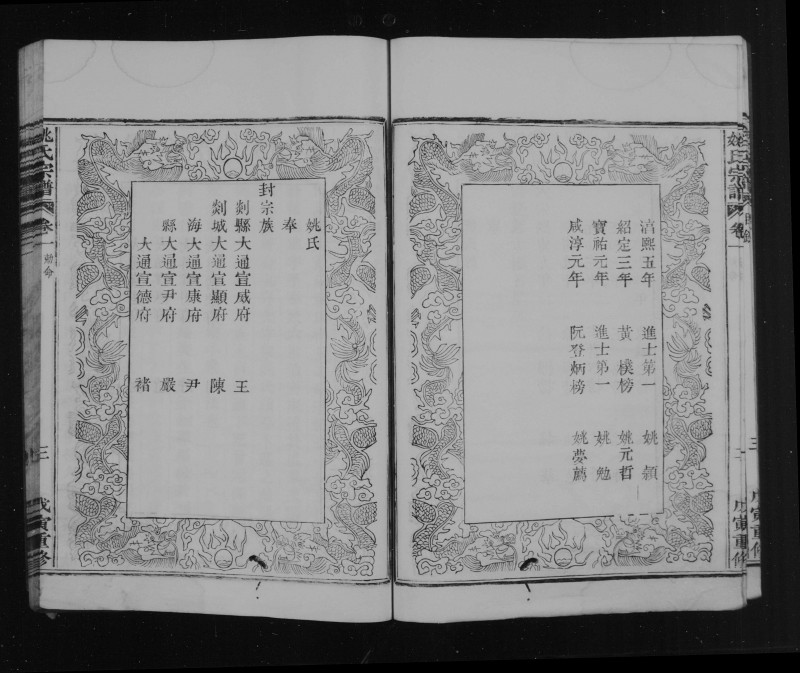 淳熙五年 進士第一 姚頴
紹定三年 黃樸榜 姚元哲
寶祐元年 進士第一 姚勉
咸淳元年 阮登炳榜 姚夢薦
姚氏宗譜 卷一
戊寅重修
姚氏
奉
封宗族
剡縣大通宣威府 王
剡城大通宣顯府 陳
海大通宣康府 尹
縣大通宣尹府 嚴
大通宣德府 褚
姚氏宗譜 卷一 勅命
三
戊寅重修